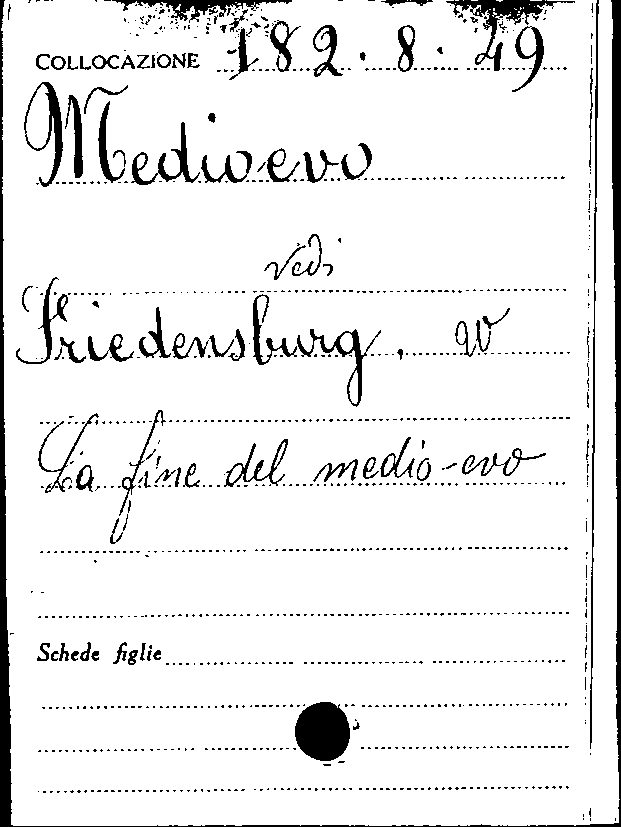 COLLOCAZIONE 182.8.49
Medioevo
vedi
Friedensburg, W
La fine del medio-evo
Schede figlie